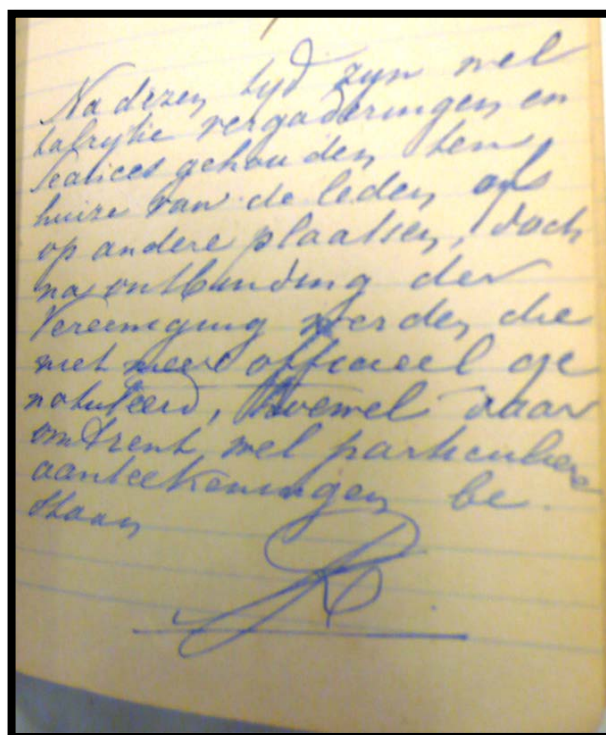 Na dezen tyd zyn wel
talryke vergaderingen en
seances gehouden ten
huize van de leden ofs
op andere plaatsen, doch
na ontbinding der
Vereeniging werden die
niet meer officieel ge
notuleerd, hoewel daar
omtrent wel particuliere
aanteekeningen be.
staan